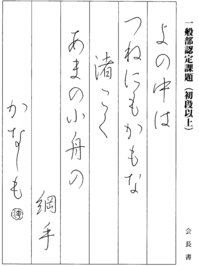 一般部認定課題(初段以上)
会長書
よの中は
つねにもがもな
渚こく
あまの小舟の
綱手
かなしも